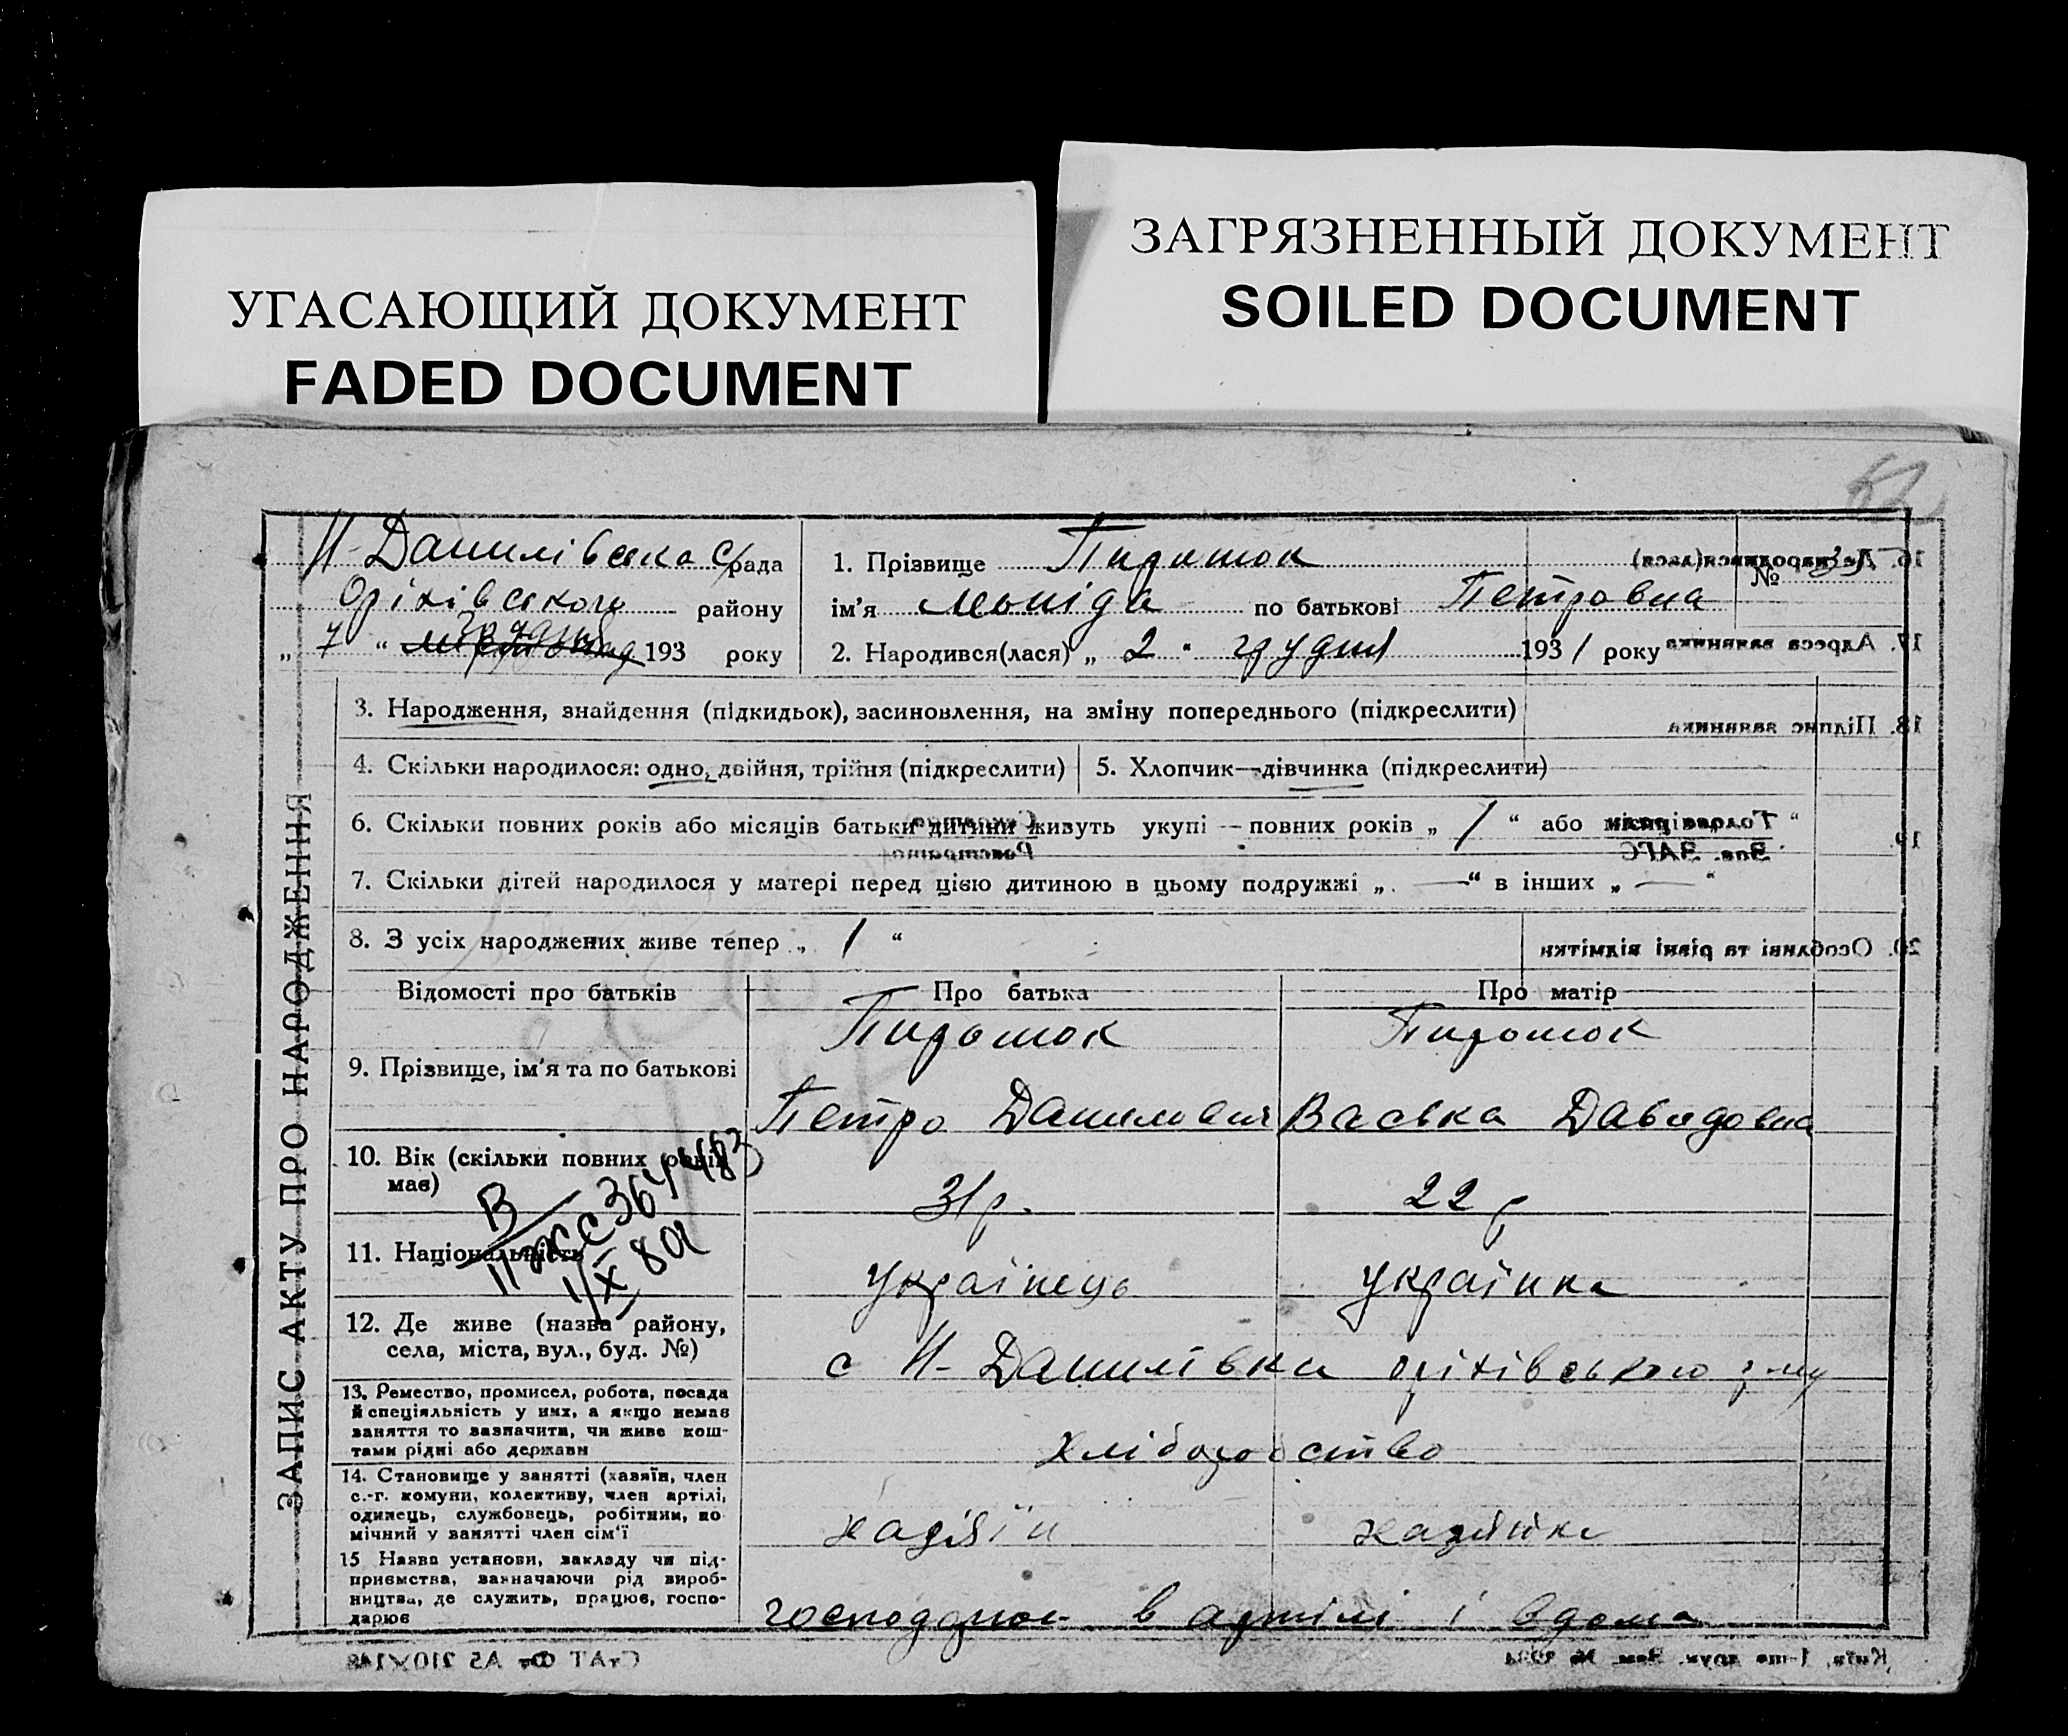 УГАСАЮЩИЙ ДОКУМЕНТ
FADED DOCUMENT
ЗАГРЯЗНЕННЫЙ ДОКУМЕНТ
SOILED DOCUMENT
ЗАПИС АКТУ ПРО НАРОДЖЕННЯ
Н-Данилівська с/рада
Оріхівського району
„ 7 “ грудня 193 року
1. Прізвище
№
ім’я по батькові Петровна
2. Народився(лася) „ 2 “ грудня 1931 року
3. Народження, знайдення (підкидьок), засиновлення, на зміну попереднього (підкреслити)
4. Скільки народилося: одно, двійня, трійня (підкреслити)
5. Хлопчик—дівчинка (підкреслити)
6. Скільки повних років або місяців батьки дитини живуть укупі — повних років „ 1 “ або
7. Скільки дітей народилося у матері перед цією дитиною в цьому подружжі „ — “ в інших „ — “
8. З усіх народжених живе тепер „ 1 “
Відомості про батьків
Про батька
Про матір
9. Прізвище, ім’я та по батькові
Петро Данилович
Васька Давидовна
10. Вік (скільки повних років має)
31 р.
22 р
11. Національність
українець
українка
12. Де живе (назва району,
села, міста, вул., буд. №)
с Н-Данилівка оріхівського р-ну
13. Ремество, промисел, робота, посада
й спеціяльність у них, а якщо немає
заняття то зазначити, чи живе кош-
тами рідні або держави
хліборобство
14. Становище у занятті (хазяїн, член
с.-г. комуни, колективу, член артілі,
одинець, службовець, робітник, по-
мічний у занятті член сім’ї
хазяїн
хазяйка
15 Назва установи, закладу чи під-
приємства, зазначаючи рід вироб-
ництва, де служить, працює, госпо-
дарює
в артілі і вдома
16. Де народився(лася)
17. Адреса заявника
18. Підпис заявника
19.
Зав. ЗАГС
20. Особливі та різні відмітки